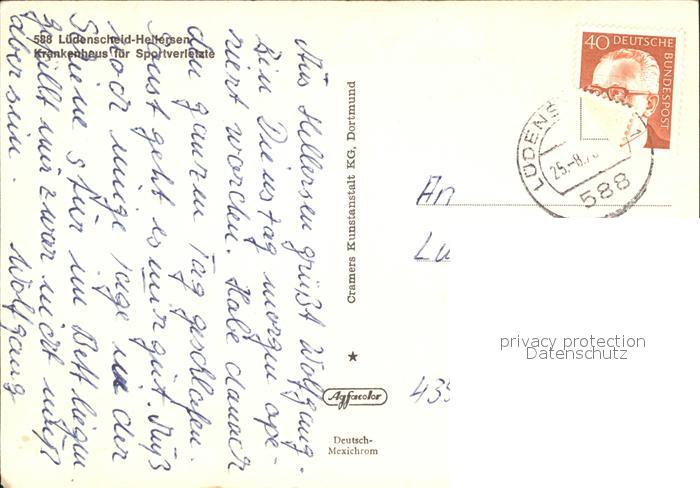 588 Lüdenscheid-Hellersen
Krankenhaus für Sportverletzte
Aus Hellersen grüßt Wolfgang.
Bin Dienstag morgen ope-
riert worden. Habe danach
den ganzen Tag geschlafen.
Sonst geht es mir gut. Muß
noch einige Tage in der
Schiene s für im Bett liegen
gefällt mir zwar nicht muß
aber sein. Wolfgang
Cramers Kunstanstalt KG, Dortmund
Agfacolor
Deutsch-
Mexichrom
40 DEUTSCHE
BUNDESPOST
LÜDENS
25.-8.
588
An
Lu
435
privacy protection
Datenschutz